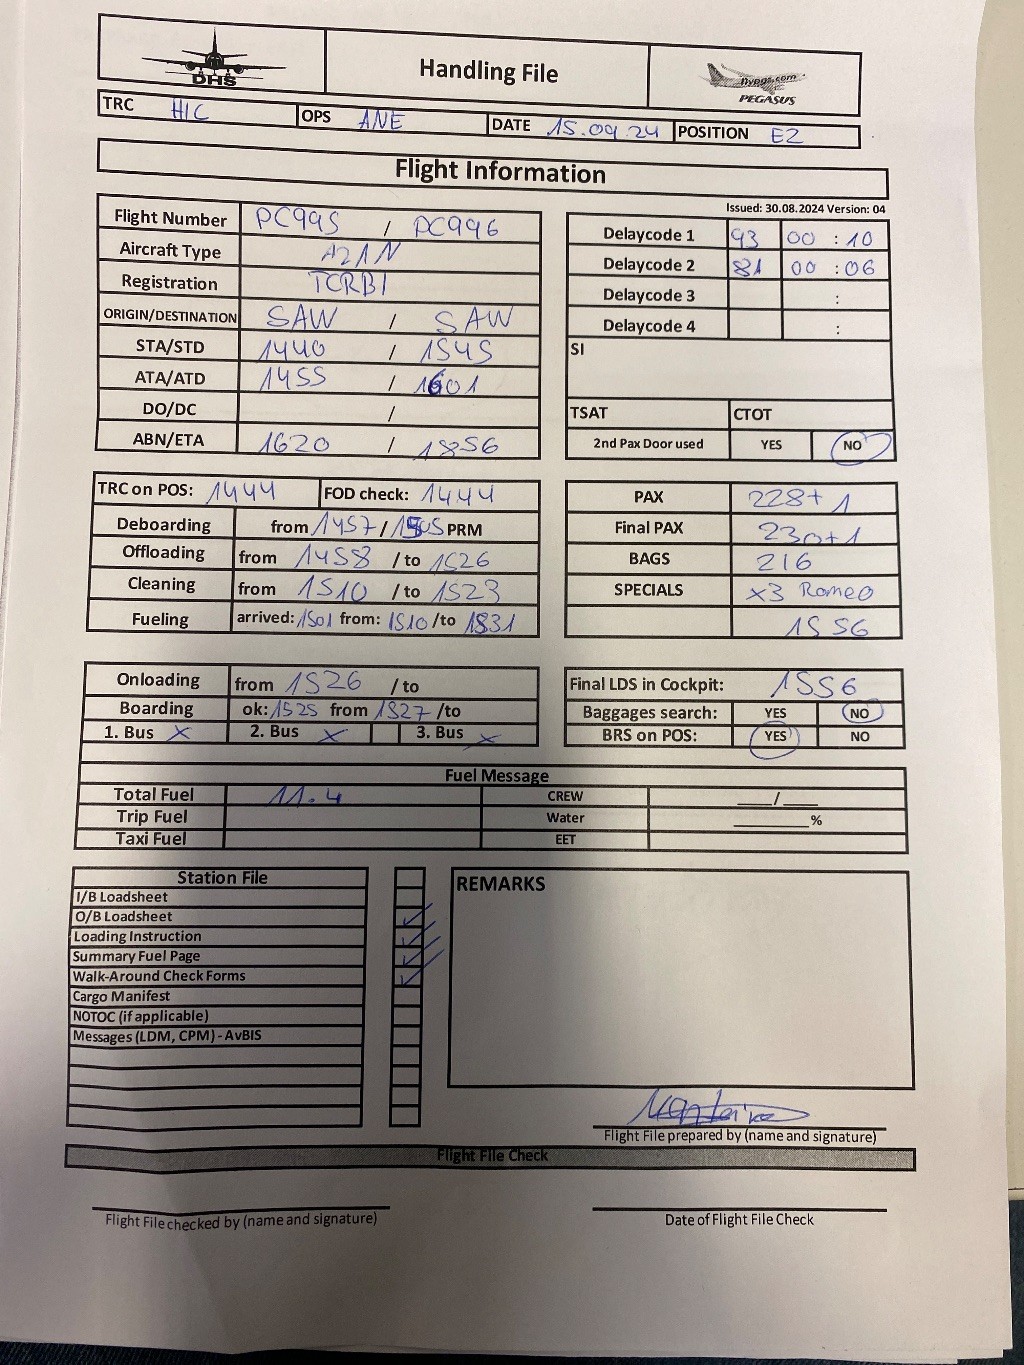 DHS
Handling File
flypgs.com
PEGASUS
TRC HIC OPS ANE DATE 15.09.24 POSITION E2
Flight Information
Issued: 30.08.2024 Version: 04
Flight Number PC995 / PC996
Aircraft Type A21N
Registration TCRBI
ORIGIN/DESTINATION SAW / SAW
STA/STD 1440 / 1545
ATA/ATD 1455 / 1601
DO/DC /
ABN/ETA 1620 / 1856
Delaycode 1 93 00 : 10
Delaycode 2 81 00 : 06
Delaycode 3 :
Delaycode 4 :
SI
TSAT CTOT
2nd Pax Door used YES NO
TRC on POS: 1444 FOD check: 1444
Deboarding from 1457 / 1505 PRM
Offloading from 1458 / to 1526
Cleaning from 1510 / to 1523
Fueling arrived: 1501 from: 1510 /to 1831
PAX 228+1
Final PAX 230+1
BAGS 216
SPECIALS x3 Romeo
1556
Onloading from 1526 / to
Boarding ok: 1525 from 1527 /to
1. Bus x 2. Bus x 3. Bus x
Final LDS in Cockpit: 1556
Baggages search: YES NO
BRS on POS: YES NO
Fuel Message
Total Fuel 11.4 CREW ___/___
Trip Fuel Water ______%
Taxi Fuel EET
Station File
I/B Loadsheet
O/B Loadsheet ✓
Loading Instruction ✓
Summary Fuel Page ✓
Walk-Around Check Forms ✓
Cargo Manifest
NOTOC (if applicable)
Messages (LDM, CPM) - AvBIS
REMARKS
Flight File prepared by (name and signature)
Flight File Check
Flight File checked by (name and signature)
Date of Flight File Check